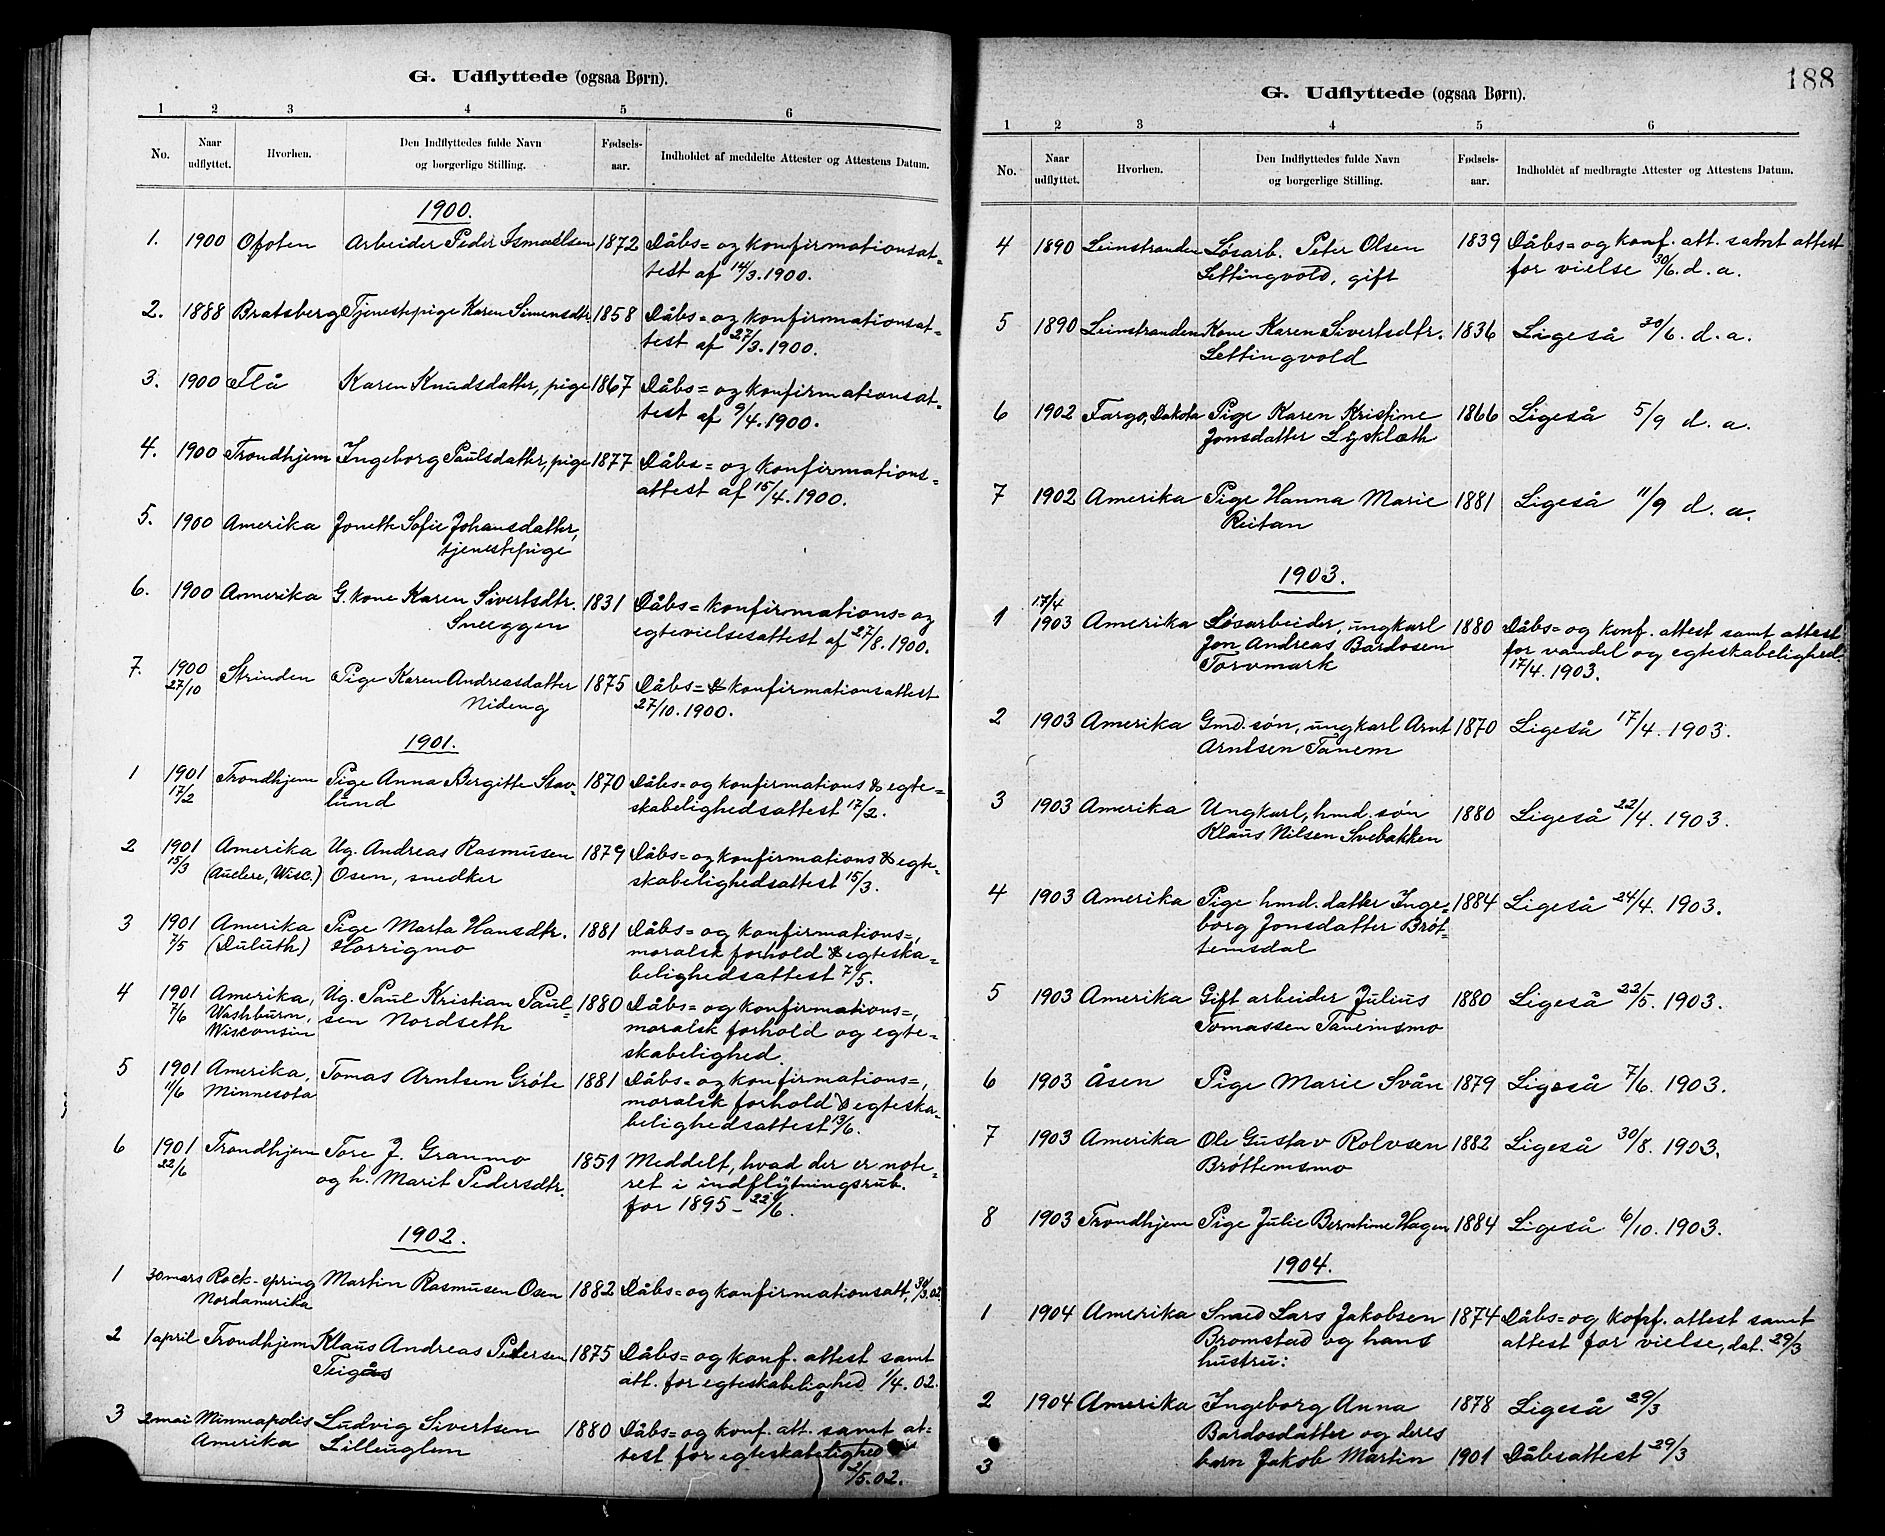 G. Udflyttede (ogsaa Børn).
1 2 3 4 5 6
No. Naar udflyttet. Hvorhen. Den Indflyttedes fulde Navn og borgerlige Stilling. Fødsels-aar. Indholdet af meddelte Attester og Attestens Datum.
1900.
1. 1900 Ofoten Arbeider Peder Ismaelsen 1872 Dåbs= og konfirmationsat=
test af 14/3.1900.
2. 1888 Bratsberg Tjenestepige Karen Simensdtr. 1858 Dåbs= og konfirmationsat=
test af 27/3.1900.
3. 1900 Flå Karen Knudsdatter, pige 1867 Dåbs= og konfirmationsat=
test af 9/4.1900.
4. 1900 Trondhjem Ingeborg Paulsdatter, pige 1877 Dåbs= og konfirmations=
attest af 15/4.1900.
5. 1900 Amerika Jonette Sofie Johansdatter,
tjenestepige
6. 1900 Amerika G. kone Karen Sivertsdtr. 1831 Dåbs= konfirmations= og
Sneeggen egtevielsesattest af 27/8.1900.
7. 1900 Strinden Pige Karen Andreasdatter 1875 Dåbs= & konfirmationsattest
27/10 Nideng 27/10.1900.
1901.
1 1901 Trondhjem Pige Anna Bergitte Stav- 1870 Dåbs= og konfirmations & egte=
17/2 lund skabelighedsattest 17/2.
2 1901 Amerika Ug. Andreas Rasmusen 1879 Dåbs= og konfirmations & egte=
15/3 (Auclere, Wisc.) Osen, snedker skabelighedsattest 15/3.
3 1901 Amerika Pige Marta Hansdtr. 1881 Dåbs= og konfirmations=,
7/5 (Duluth) Horrigmo moralsk forhold & egteska=
belighedsattest 7/5.
4 1901 Amerika, Ug. Paul Kristian Paul- 1880 Dåbs= og konfirmations=,
7/6 Washburn, sen Nordseth moralsk forhold og egte=
Wisconsin skabelighed.
5 1901 Amerika, Tomas Arntsen Grøte 1881 Dåbs= og konfirmations=,
11/6 Minnesota moralsk forhold & egteska=
belighedsattest 13/6.
6 1901 Trondhjem Tore J. Granmo 1851 Meddelt, hvad der er note=
22/6 og h. Marit Pedersdtr. ret i indflytningsrub.
for 1895 – 22/6.
1902.
1 30 mars Rock-spring Martin Rasmusen Osen 1882 Dåbs= og konfirmationsatt. 30/3.02.
Nordamerika
2 1 april Trondhjem Klaus Andreas Pedersen 1875 Dåbs= og konf. attest samt
Teigås att. for egteskabelighed 1/4.02.
3 2 mai Minneapolis Ludvig Sivertsen 1880 Dåbs= og konf. att. samt at=
Amerika Lilleuglem test for egteskabelighed
2/5.02.
188
G. Udflyttede (ogsaa Børn).
1 2 3 4 5 6
No. Naar udflyttet. Hvorhen. Den Indflyttedes fulde Navn og borgerlige Stilling. Fødsels-aar. Indholdet af medbragte Attester og Attestens Datum.
4 1890 Leinstranden Løsarb. Peter Olsen 1839 Dåbs= og konf. att. samt attest
Lettingvold, gift for vielse 30/6. d. a.
5 1890 Leinstranden Kone Karen Sivertsdtr. 1836 Ligeså 30/6. d. a.
Lettingvold
6 1902 Fargo, Dakota Pige Karen Kristine 1866 Ligeså 5/9 d. a.
Jonsdatter Lysklæth
7 1902 Amerika Pige Hanna Marie 1881 Ligeså 11/9 d. a.
Reitan
1903.
17/4
1 1903 Amerika Løsarbeider, ungkarl 1880 Dåbs= og konf. attest samt attest
Jon Andreas Bardosen for vandel og egteskabelighed
Torvmark 17/4.1903.
2 1903 Amerika Gmd. søn, ungkarl Arnt 1870 Ligeså 17/4.1903.
Arntsen Tanem
3 1903 Amerika Ungkarl, hmd. søn 1880 Ligeså 22/4.1903.
Klaus Nilsen Svebakken
4 1903 Amerika Pige hmd. datter Inge= 1884 Ligeså 24/4.1903.
borg Jonsdatter Brøt=
temsdal
5 1903 Amerika Gift arbeider Julius 1880 Ligeså 22/5.1903.
Tomassen Tanemsmo
6 1903 Åsen Pige Marie Svån 1879 Ligeså 7/6.1903.
7 1903 Amerika Ole Gustav Rolvsen 1882 Ligeså 30/8.1903.
Brøttemsmo
8 1903 Trondhjem Pige Julie Berntine Hagen 1884 Ligeså 6/10.1903.
1904.
1 1904 Amerika Smed Lars Jakobsen 1874 Dåbs= og konf. attest samt
Bromstad og hans attest for vielse, dat. 29/3
hustru:
2 1904 Amerika Ingeborg Anna 1878 Ligeså 29/3
Bardosdatter og deres
3 barn Jakob Martin 1901 Dåbsattest 29/3